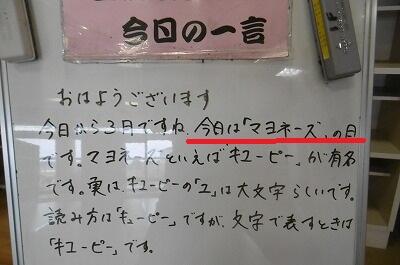 今日の一言
おはようございます
今日から3月ですね。今日は「マヨネーズ」の日
です。マヨネーズといえば「キューピー」が有名
です。実は、キユーピーの「ユ」は大文字らしいです。
読み方は「キューピー」ですが、文字で表すときは
「キユーピー」です。